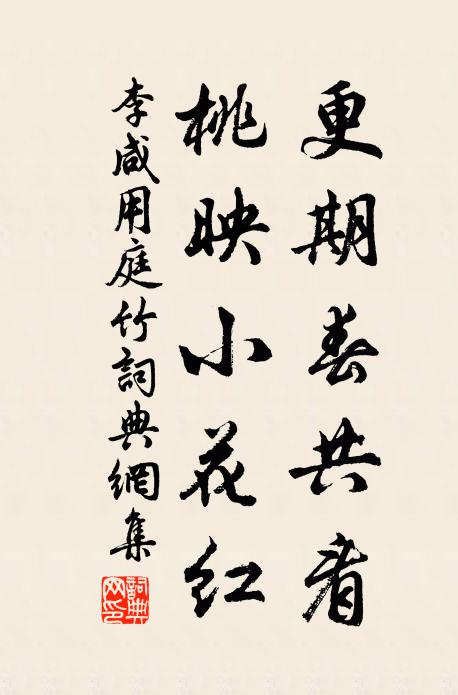 更期春共看
桃映小花红
李咸用庭竹詞典網集
詞典网印